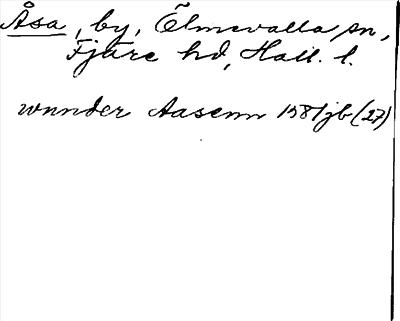 Åsa, by, Ölmevalla sn,
Fjäre hd, Hall. l.
wnnder Aasenn 1581 jb (27)